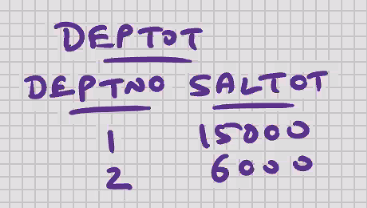 DEPTOT
DEPTNO SALTOT
1 15000
2 6000